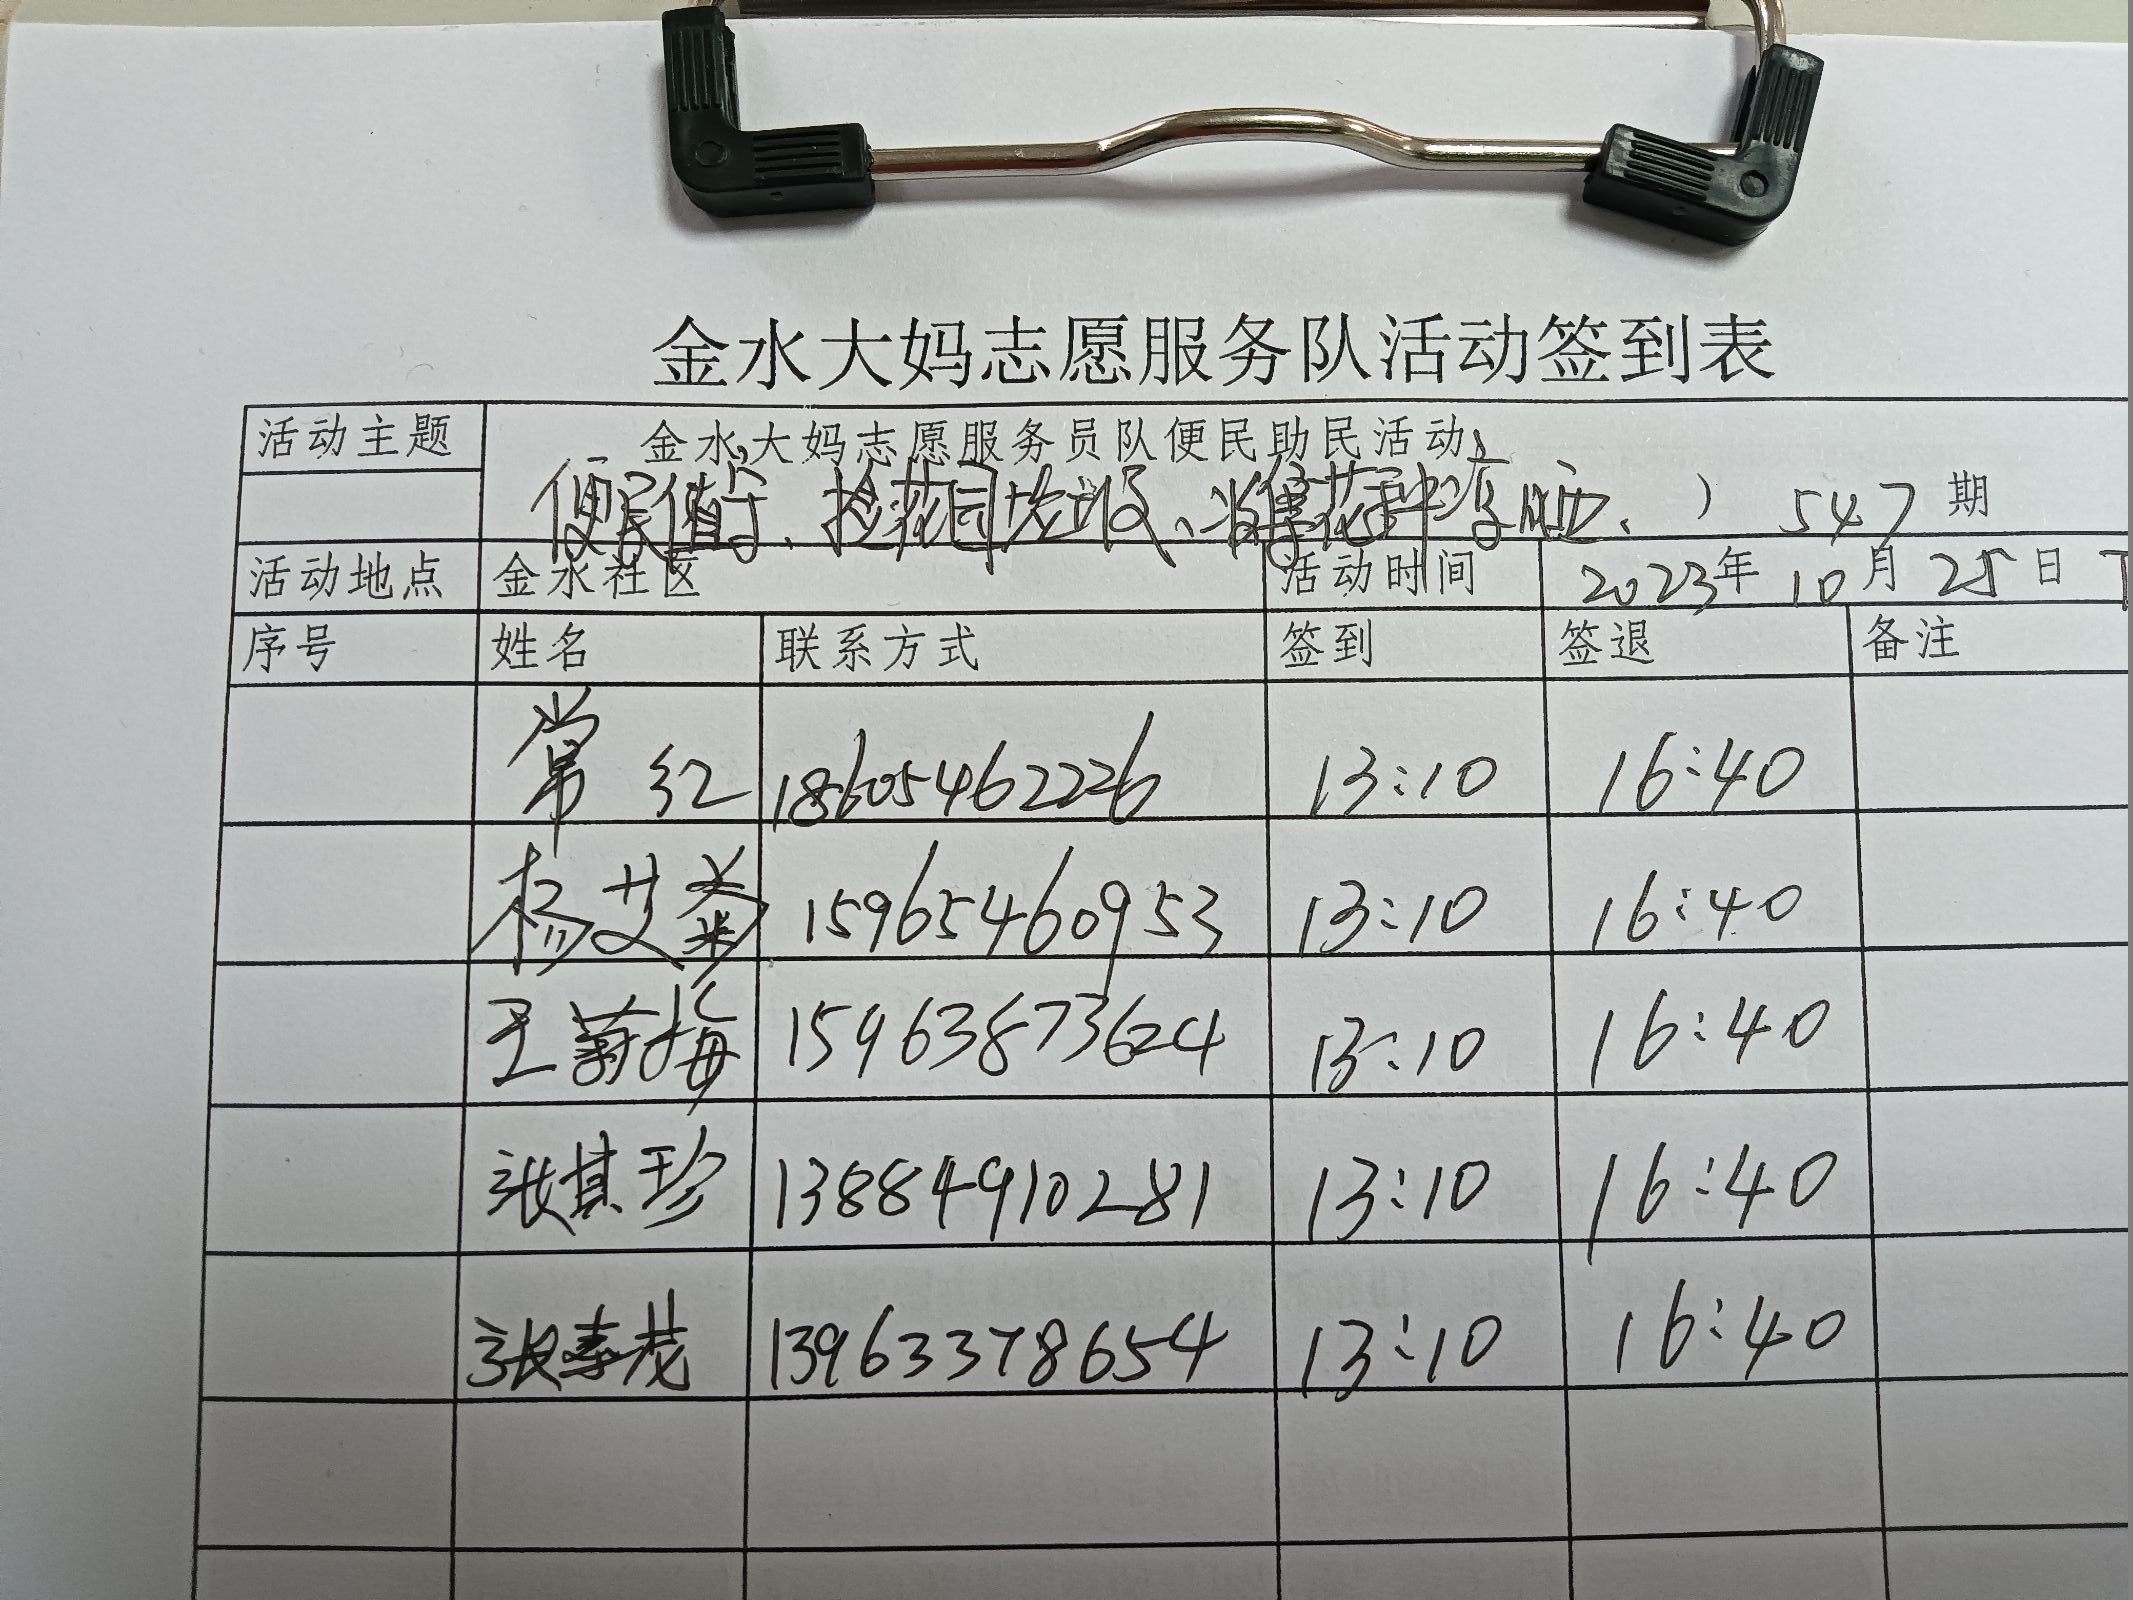 金水大妈志愿服务队活动签到表
活动主题 金水大妈志愿服务员队便民助民活动
便民值守、捡花园垃圾、收集花种凉晒、） 547期
活动地点 金水社区 活动时间 2023年10月25日下
序号 姓名 联系方式 签到 签退 备注
常红 18605462226 13:10 16:40
杨艾菊 15965460953 13:10 16:40
王蔚梅 15963873624 13:10 16:40
张其珍 13884910281 13:10 16:40
张春茂 13963378654 13:10 16:40